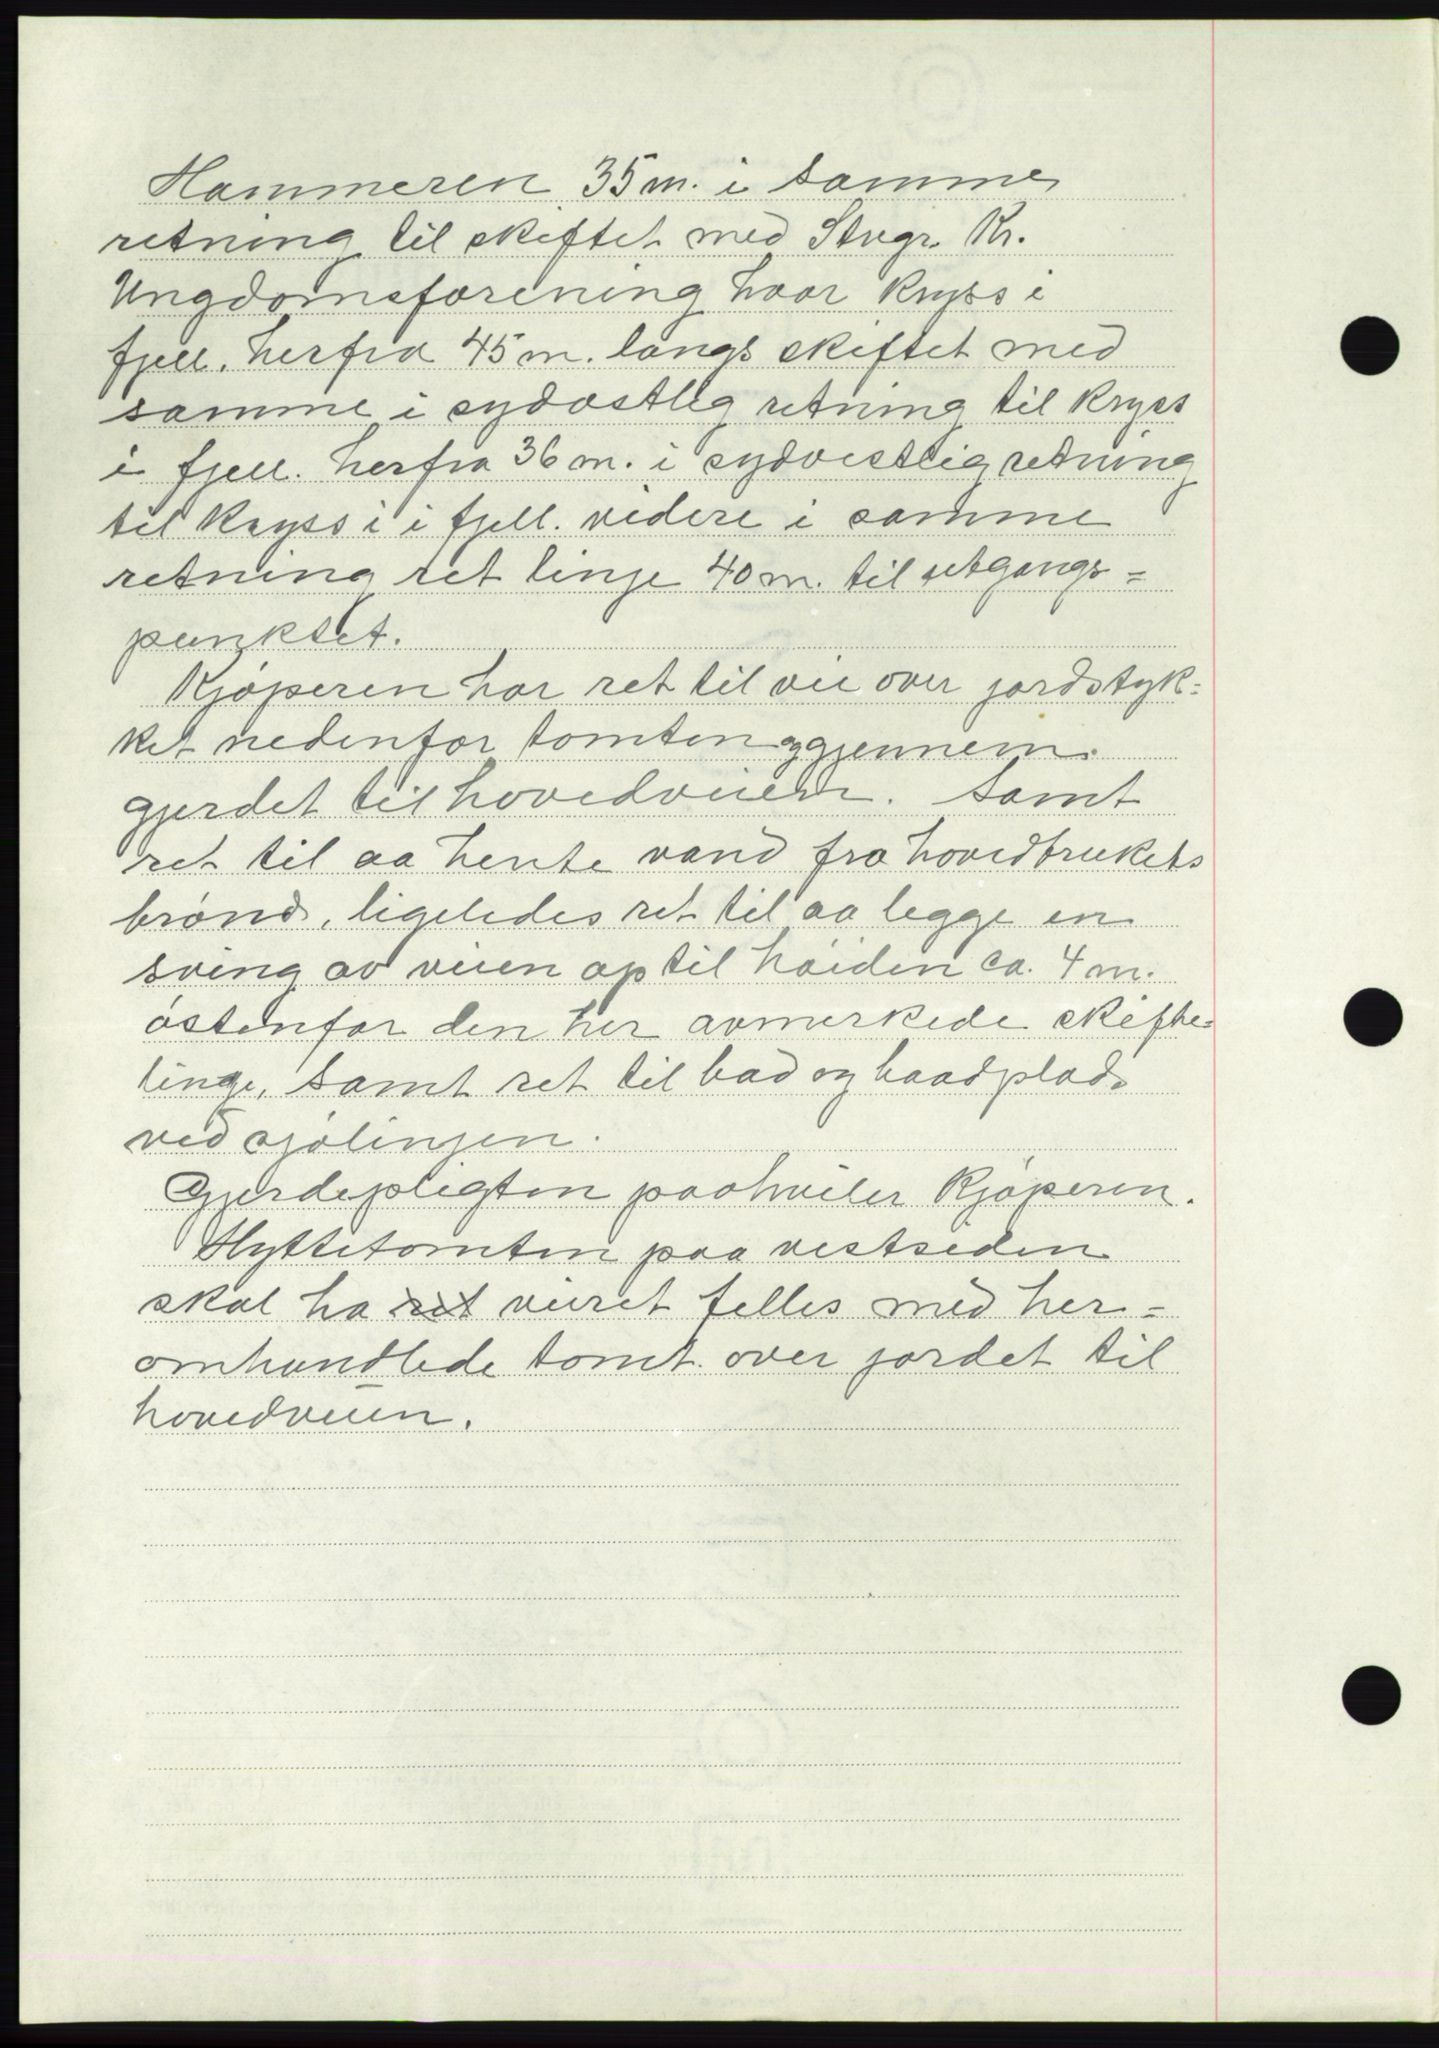 Hammeren 35 m. i samme
retning til skiftet med Stvgr. Kr.
Ungdomsforening hvor kryss i
fjell. herfra 45 m. langs skiftet med
samme i sydostlig retning til kryss
i fjell. herfra 36 m. i sydvestlig retning
til kryss i i fjell. videre i samme
retning ret linje 40 m. til utgangs=
punktet.
Kjøperen har ret til vei over jordstyk=
ket nedenfor tomten og gjennem
gjerdet til hovedveien. Samt
ret til aa hente vand fra hovedbrukets
brønd, ligeledes ret til aa legge en
sving av veien op til høiden ca. 4 m.
østenfor den her avmerkede skifte=
linge, samt ret til bad og baadplads
ved sjølinjen.
Gjerdepligten paahviler Kjøperen.
Hyttetomten paa vestsiden
skal ha ret veiret felles med her=
omhandlede tomt over jordet til
hovedveien.